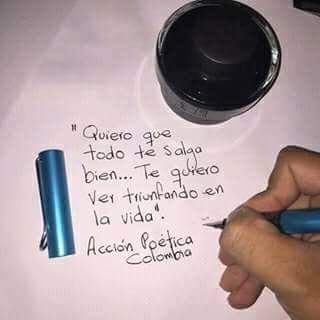 "Quiero que
todo te salga
bien... Te quiero
ver triunfando en
la vida".
Acción Poética
Colombia